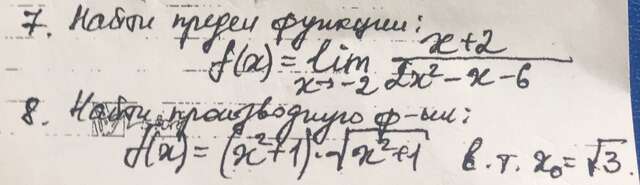 7. Найти предел функции:
f(x) = lim x→-2 (x+2)/(2x²-x-6)
8. Найти производную ф-ии:
f(x) = (x²+1)·√(x²+1) в.т. x₀=√3.